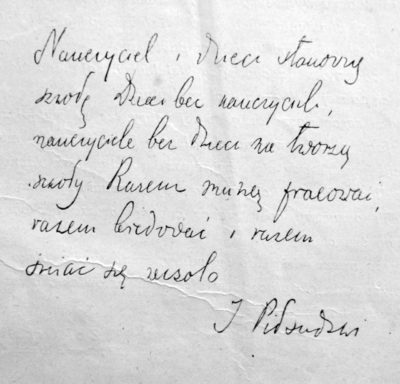 Nauczyciel i dzieci stanowią
szkołę Dzieci bez nauczycieli,
nauczyciele bez dzieci nie tworzą
szkoły Razem muszą pracować,
razem biedować i razem
śmiać się wesoło
J Piłsudski